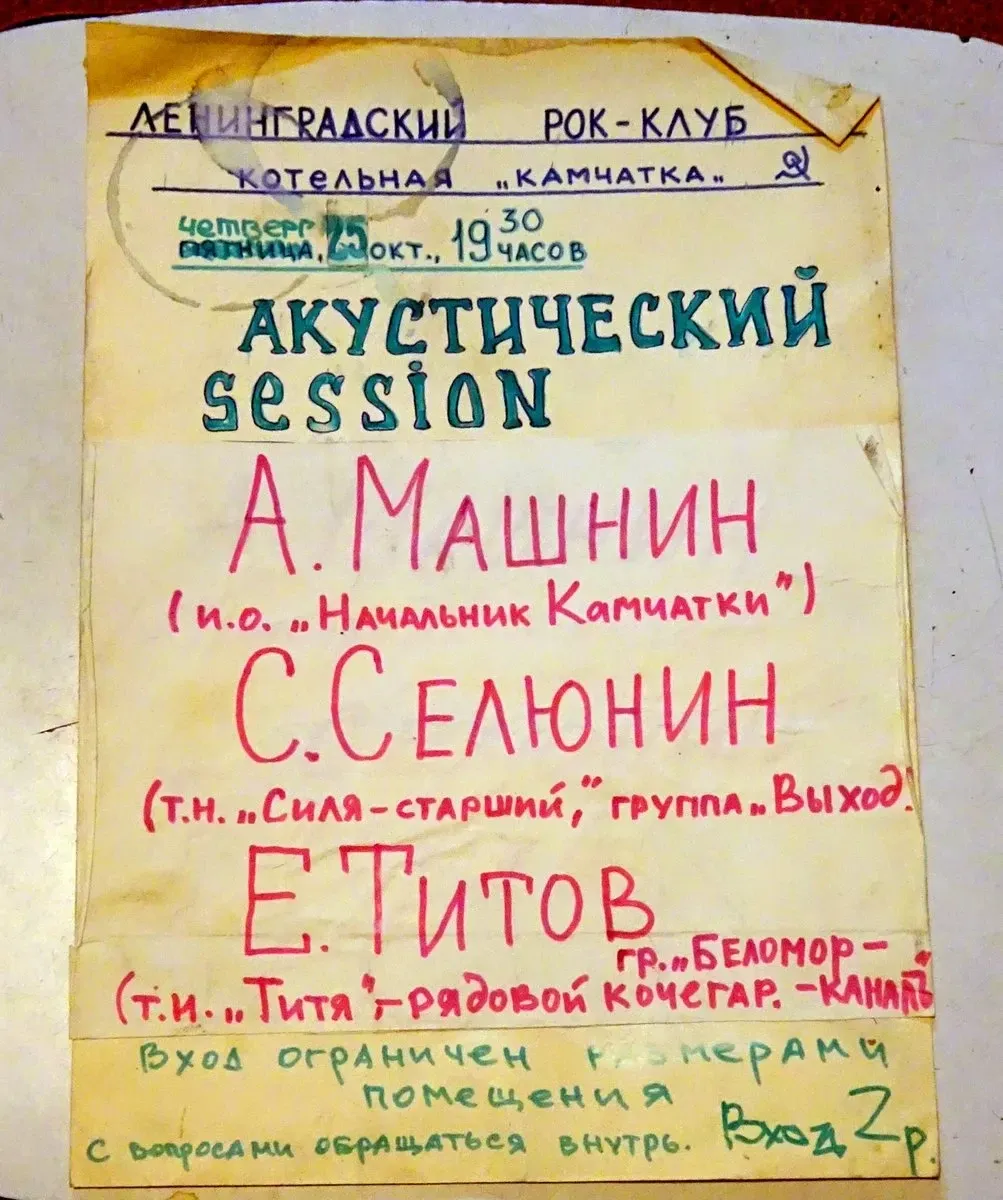 ЛЕНИНГРАДСКИЙ РОК-КЛУБ
КОТЕЛЬНАЯ „КАМЧАТКА„ ☭
четверг
ПЯТНИЦА, 25 ОКТ., 19 30 ЧАСОВ
АКУСТИЧЕСКИЙ
SESSION
А. МАШНИН
(и.о. „НАЧАЛЬНИК КАМЧАТКИ")
С. СЕЛЮНИН
(т.н. „СИЛЯ-СТАРШИЙ," ГРУППА „ВЫХОД.
Е. ТИТОВ
гр. „БЕЛОМОР-
(т.н. „ТИТЯ"-РЯДОВОЙ КОЧЕГАР. -КАНАЛЪ"
ВХОД ОГРАНИЧЕН РАЗМЕРАМИ
ПОМЕЩЕНИЯ
С ВОПРОСАМИ ОБРАЩАТЬСЯ ВНУТРЬ. ВХОД 2 р.